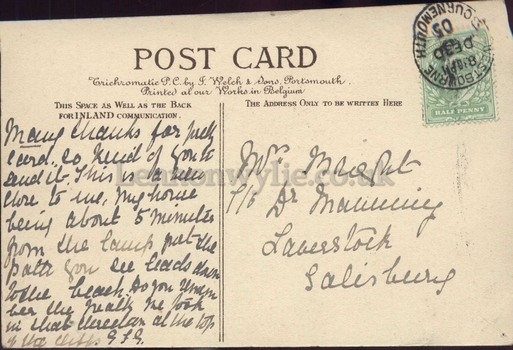 POST CARD
Trichromatic P.C. by F. Welch & Sons, Portsmouth.
Printed at our Works in Belgium
THIS SPACE AS WELL AS THE BACK
FOR INLAND COMMUNICATION.
THE ADDRESS ONLY TO BE WRITTEN HERE
WESTBOURNE
BOURNEMOUTH
DE 30
05
HALF PENNY
Many thanks for
card. So kind of you to
This is a view
close to me, my home
being about 5 minutes
from the lamp
path you see leads down
to the beach. Do you remem
ber the we took
in that direction at the top
of the cliffs.
Dr Manning
Laverstock
Salisbury
Lenton-wylie.co.uk